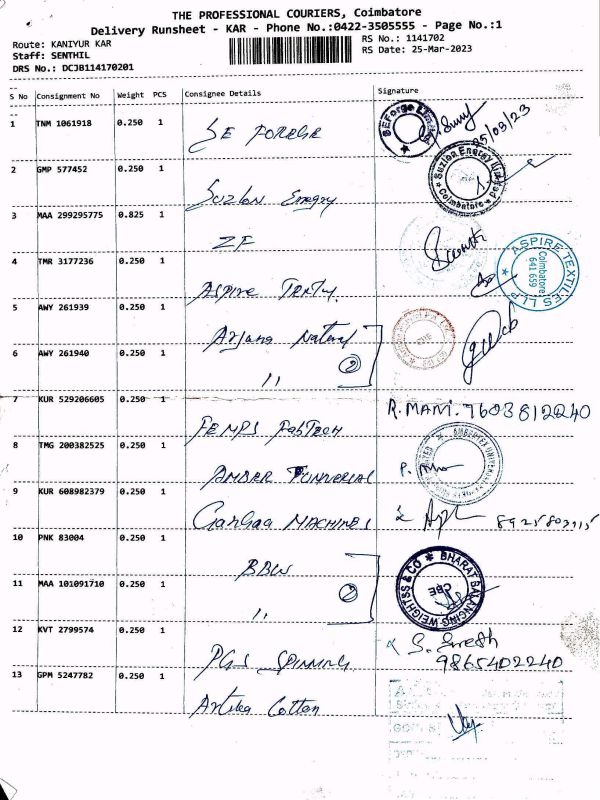 THE PROFESSIONAL COURIERS, Coimbatore
Delivery Runsheet - KAR - Phone No.:0422-3505555 - Page No.:1
Route: KANIYUR KAR
RS No.: 1141702
Staff: SENTHIL
RS Date: 25-Mar-2023
DRS No.: DCJB114170201
S No Consignment No Weight PCS Consignee Details Signature
1 TNM 1061918 0.250 1 SE FORGE
SEForge Limited
25/03/23
2 GMP 577452 0.250 1 Suzlon Energy
Suzlon Energy Limited
Coimbatore
3 MAA 299295775 0.825 1 ZF
4 TMR 3177236 0.250 1 Aspire
ASPIRE TEXTILES LLP
Coimbatore
641 659
5 AWY 261939 0.250 1 Arjuna Natural
6 AWY 261940 0.250 1 11 2
7 KUR 529206605 0.250 1 FabTech
R. MANI. 7603812240
8 TMG 200382525 0.250 1 AMBER
9 KUR 608982379 0.250 1 Gangaa MACHINES
10 PNK 83004 0.250 1 BBW
11 MAA 101091710 0.250 1 11 2
BHARAT BALANCING WEIGHTSS & CO
CBE
12 KVT 2799574 0.250 1 PGS SPINNING
S. Suresh
9865402240
13 GPM 5247782 0.250 1 Cotton